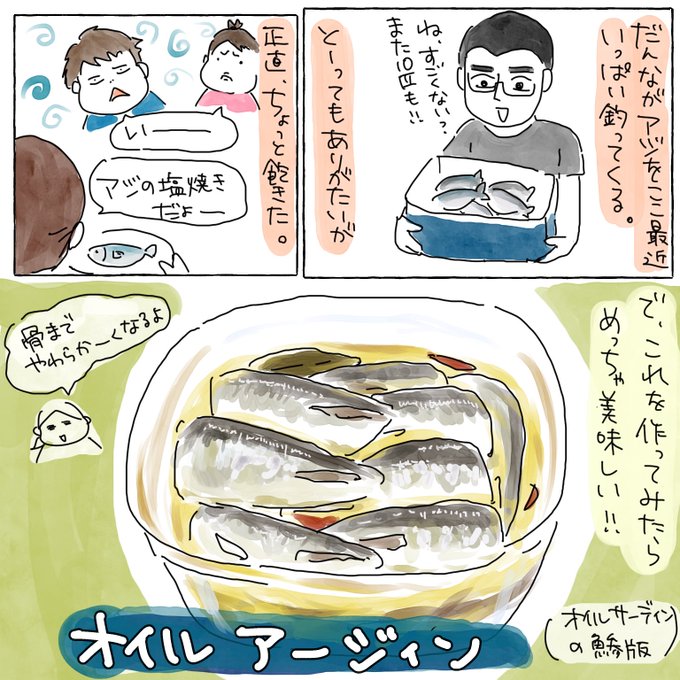 だんながアジをここ最近
いっぱい釣ってくる。
ね、すごくない？
また10匹も!!
とーってもありがたいが
正直、ちょっと飽きた。
いーーー
アジの塩焼き
だよー
で、これを作ってみたら
めっちゃ美味しい!!
骨まで
やわらかーくなるよ
オイル アージィン
(オイルサーディン
の鯵版)